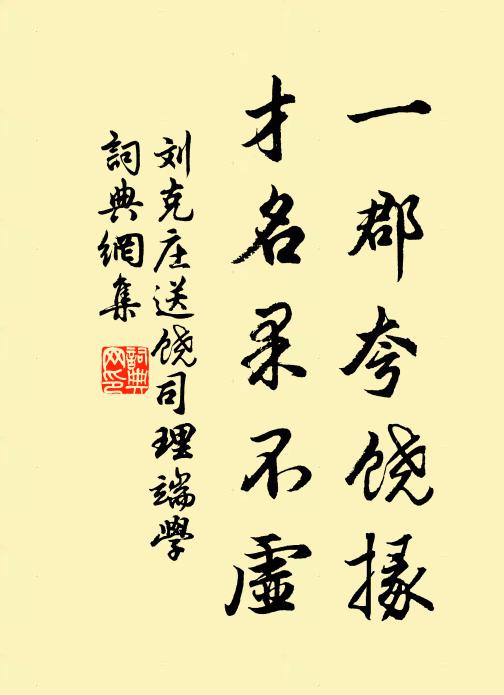 一郡夸饶掾
才名果不虚
刘克庄送饶司理端学
詞典網集
詞典網印